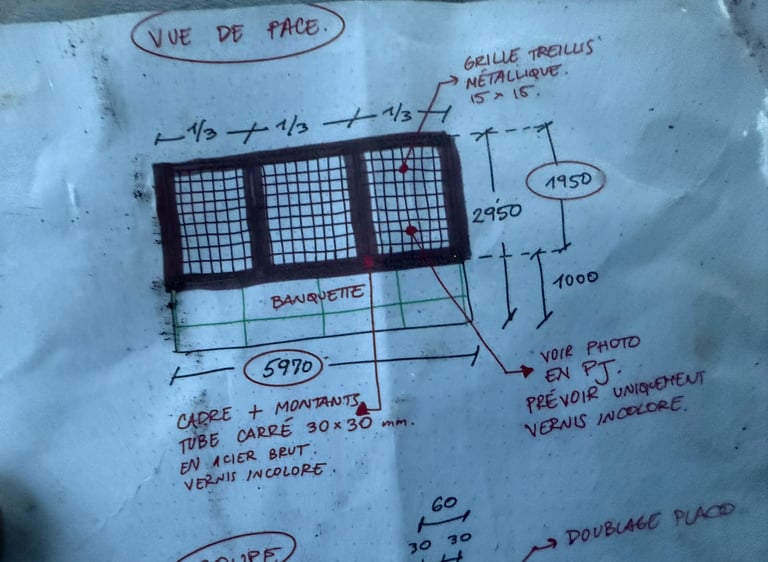 VUE DE FACE.
GRILLE TREILLIS
MÉTALLIQUE.
15 x 15.
1/3 1/3 1/3
1950
2950
1000
BANQUETTE
5970
VOIR PHOTO
EN PJ.
PRÉVOIR UNIQUEMENT
VERNIS INCOLORE.
CADRE + MONTANTS
TUBE CARRÉ 30 x 30 mm.
EN ACIER BRUT.
VERNIS INCOLORE.
60
30 30
DOUBLAGE PLACO